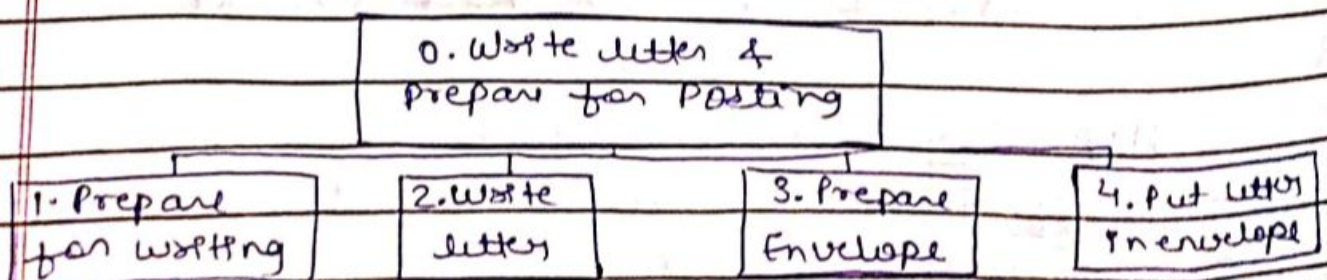 0. Write letter &
prepare for Posting
1. Prepare
for writing
2. Write
letter
3. Prepare
Envelope
4. Put letter
in envelope